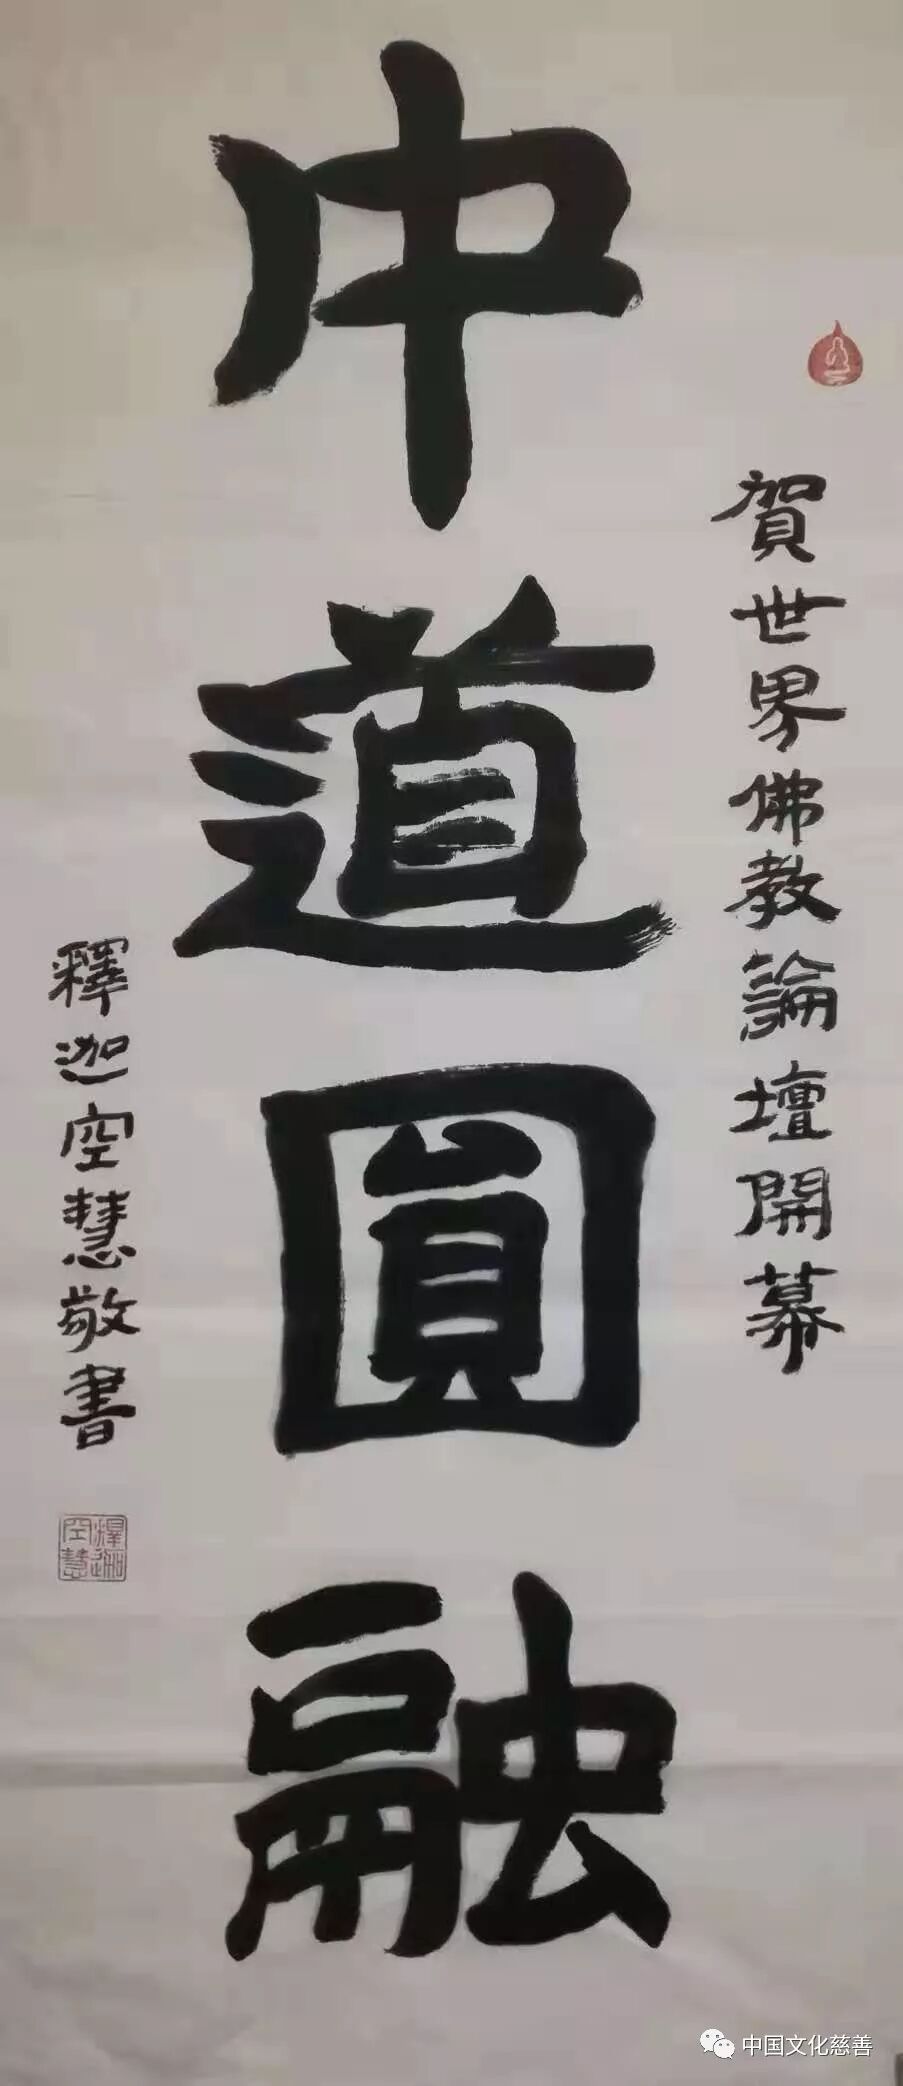 賀世界佛教論壇開幕
中道圓融
釋迦空慧敬書
釋迦空慧
中国文化慈善